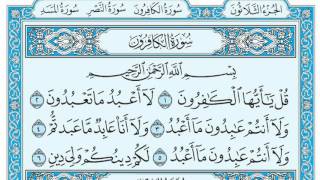 الجزء الثلاثون سورة الكافرون سورة النصر سورة المسد
سورة الكافرون
بِسْمِ ٱللَّهِ ٱلرَّحْمَٰنِ ٱلرَّحِيمِ
قُلْ يَٰٓأَيُّهَا ٱلْكَٰفِرُونَ ١ لَآ أَعْبُدُ مَا تَعْبُدُونَ ٢
وَلَآ أَنتُمْ عَٰبِدُونَ مَآ أَعْبُدُ ٣ وَلَآ أَنَا۠ عَابِدٌ مَّا عَبَدتُّمْ
وَلَآ أَنتُمْ عَٰبِدُونَ مَآ أَعْبُدُ ٥ لَكُمْ دِينُكُمْ وَلِىَ دِينِ ٦